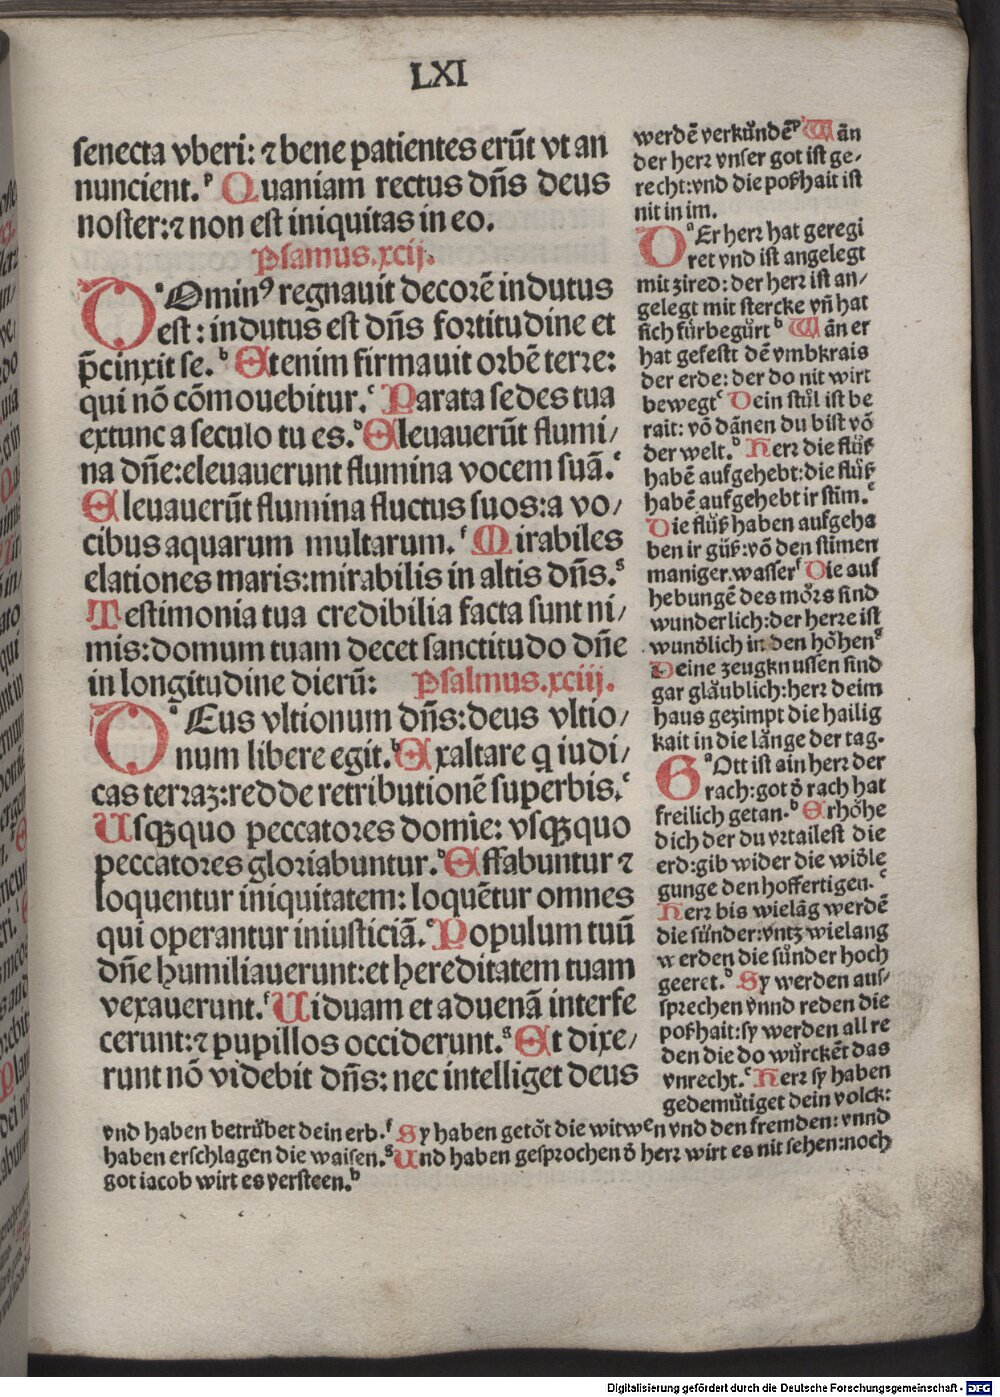 LXI
senecta vberi: ⁊ bene patientes erūt vt an
nuncient.ᵖ Quaniam rectus dn̄s deus
noster:⁊ non est iniquitas in eo.
Psamus.xcij.
DOminꝰ regnauit decorē indutus
est: indutus est dn̄s fortitudine et
p̄cinxit se.ᵇ Etenim firmauit orbē terre:
qui nō cōmouebitur.ᶜ Parata sedes tua
extunc a seculo tu es.ᵈ Eleuauerūt flumi/
na dn̄e:eleuauerunt flumina vocem suā.ᵉ
Eleuauerūt flumina fluctus suos:a vo/
cibus aquarum multarum.ᶠ Mirabiles
elationes maris:mirabilis in altis dn̄s.ᵍ
Testimonia tua credibilia facta sunt ni/
mis:domum tuam decet sanctitudo dn̄e
in longitudine dierū: Psalmus.xciij.
DᵃEus vltionum dn̄s:deus vltio/
num libere egit.ᵇ Exaltare q iudi/
cas terraꝫ:redde retributionē superbis.ᶜ
Usqꝫquo peccatores domīe: vsqꝫquo
peccatores gloriabuntur.ᵈ Effabuntur ⁊
loquentur iniquitatem: loquētur omnes
qui operantur iniusticiā.ᵉ Populum tuū
dn̄e humiliauerunt:et hereditatem tuam
vexauerunt.ᶠ Uiduam et aduenā interfe
cerunt:⁊ pupillos occiderunt.ᵍ Et dixe/
runt nō videbit dn̄s: nec intelliget deus
werdē verkündēᵖ Wān
der herꝛ vnser got ist ge/
recht:vnd die poßhait ist
nit in im.
DᵃEr herꝛ hat geregi
ret vnd ist angelegt
mit zired: der herꝛ ist an/
gelegt mit stercke vn̄ hat
sich fürbegürt ᵇ Wān er
hat gefestt dē vmbkrais
der erde: der do nit wirt
bewegtᶜ Dein stůl ist be
rait: vō dānen du bist vō
der welt.ᵈ Herꝛ die flüß
habē aufgehebt:die flüß
habē aufgehebt ir stim.ᵉ
Die flüß haben aufgeha
ben ir güß:vō den stimen
maniger.wasserᶠ Die auf
hebungē des mōrs sind
wunderlich:der herꝛe ist
wundlich in den hōhenᵍ
Deine zeugknussen sind
gar glaublich:herꝛ deim
haus gezimpt die hailig
kait in die lānge der tag.
GᵃOtt ist ain herꝛ der
rach:got ð rach hat
freilich getan.ᵇ Erhōhe
dich der du vrtailest die
erd:gib wider die widle
gunge den hoffertigen.ᶜ
Herꝛ bis wielāg werdē
die sünder:vntz wielang
werden die sünder hoch
geeret.ᵈ Sy werden aus/
sprechen vnnd reden die
poßhait:sy werden all re
den die do würckēt das
vnrecht.ᵉ Herꝛ sy haben
gedemütiget dein volck:
vnd haben betrübet dein erb.ᶠ Sy haben getōt die witwen vnd den fremden: vnnd
haben erschlagen die waisen.ᵍ Und haben gesprochen ð herꝛ wirt es nit sehen:noch
got iacob wirt es versteen.ʰ
Digitalisierung gefördert durch die Deutsche Forschungsgemeinschaft - DFG